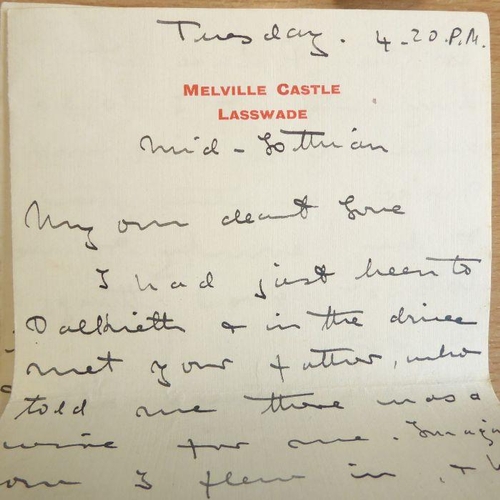 Tuesday. 4-20 P.M.
MELVILLE CASTLE
LASSWADE
Mid-Lothian
My own dearest Love
I had just been to
Dalkieth & in the drive
met your father, who
told me there was a
wire for me. Imag
I flew in, &